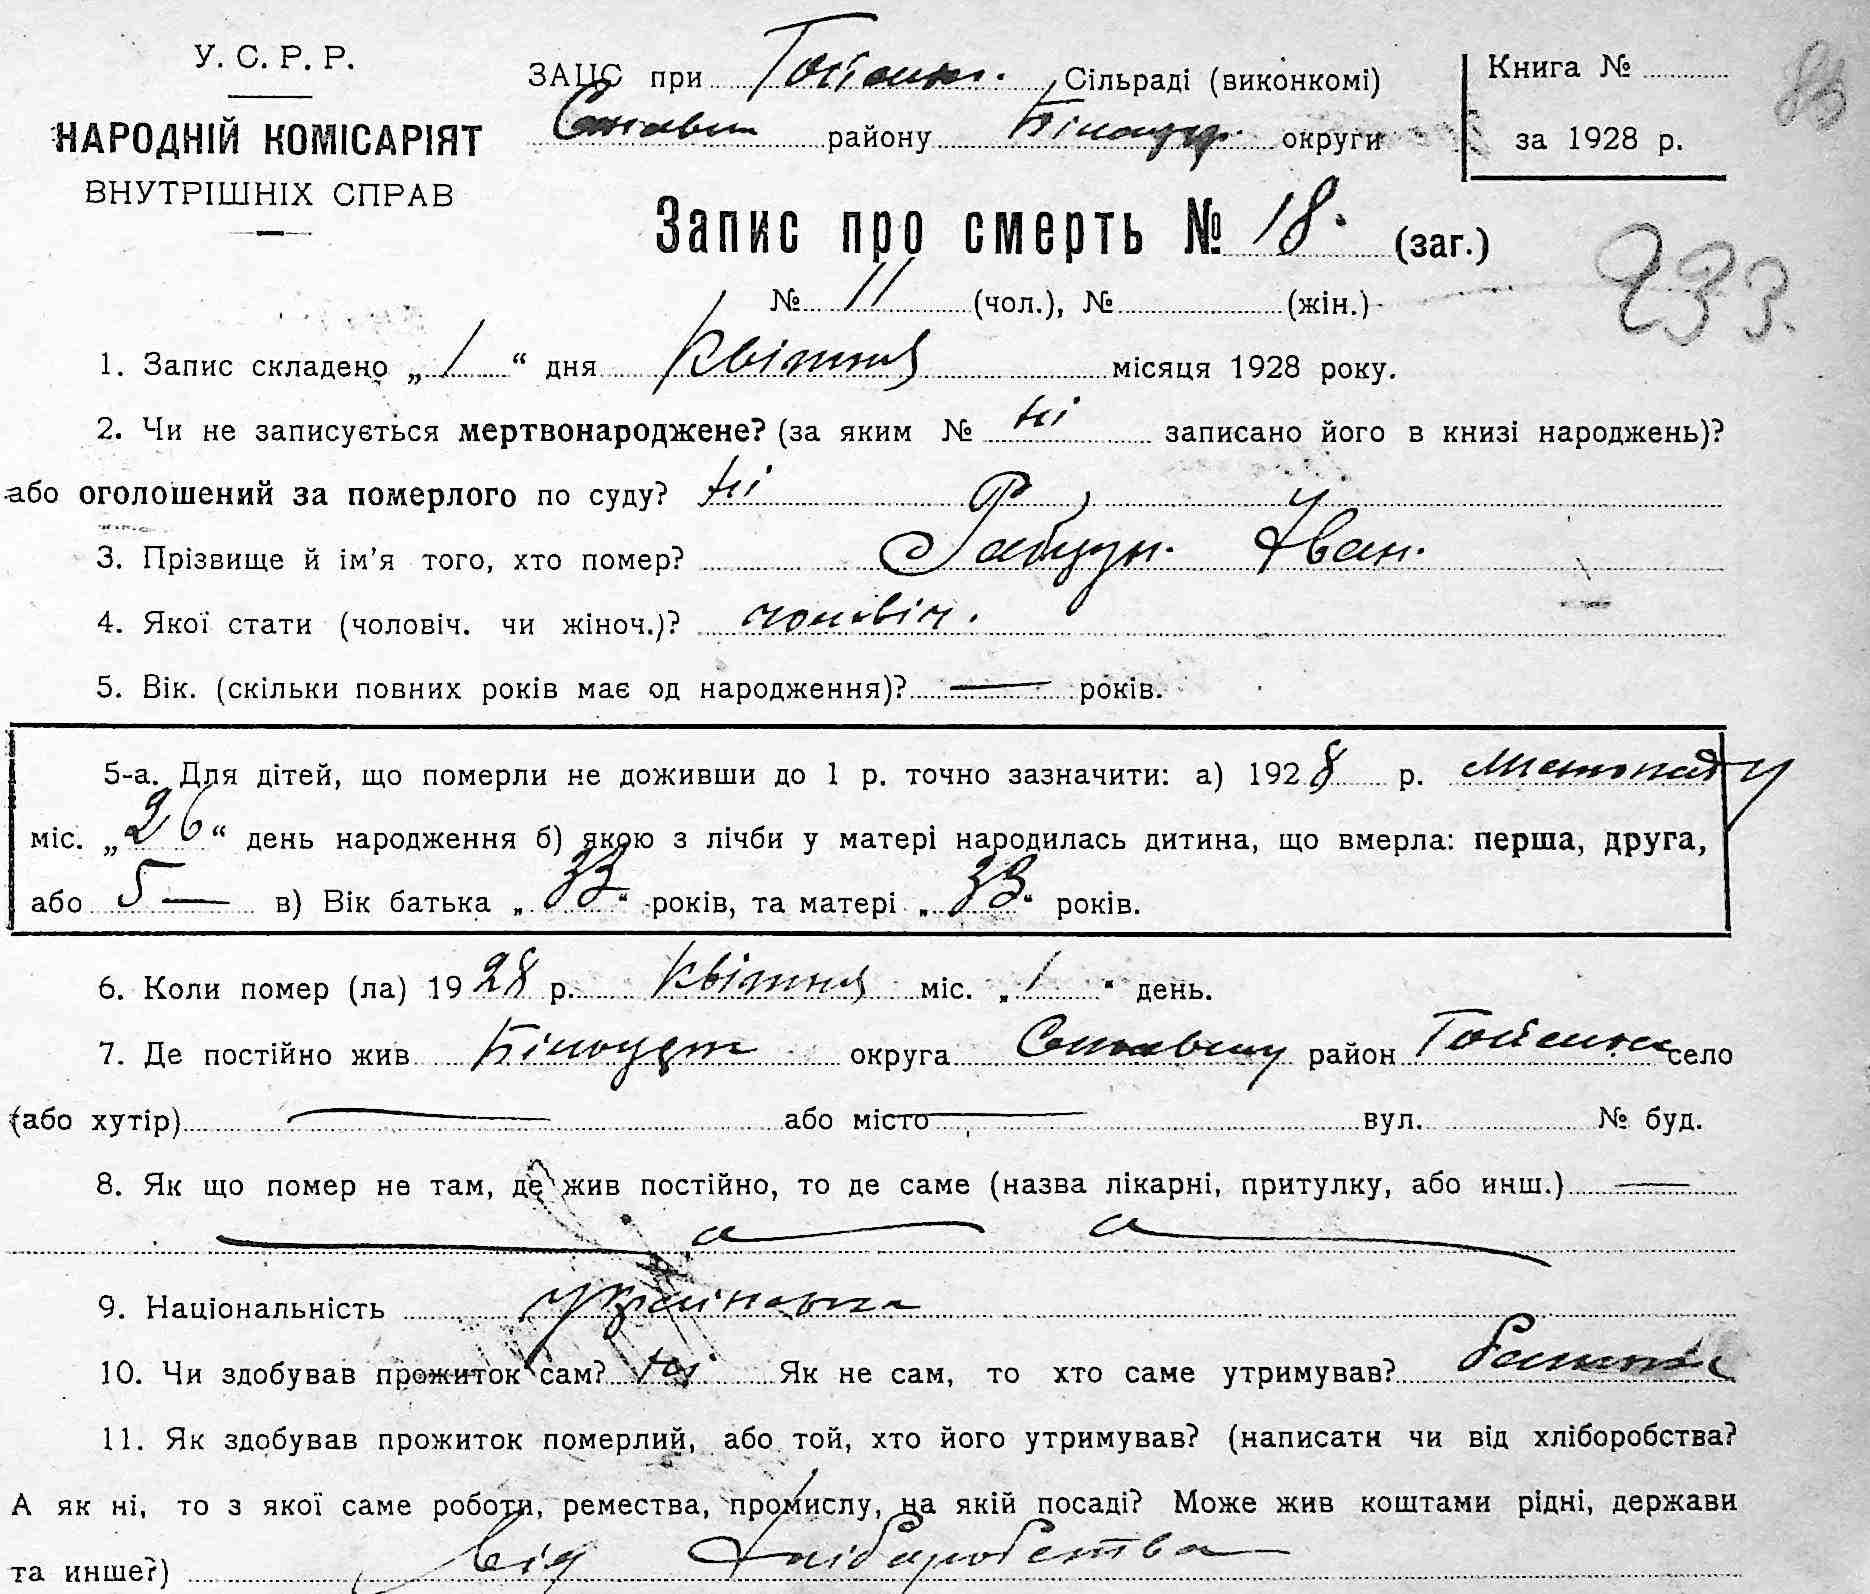 У. С. Р. Р.
НАРОДНІЙ КОМІСАРІЯТ
ВНУТРІШНІХ СПРАВ
ЗАЦС при Сільраді (виконкомі)
району округи
Книга №
за 1928 р.
83
Запис про смерть № 18. (заг.)
№ 11 (чол.), № (жін.)
233.
1. Запис складено „1“ дня Квітня місяця 1928 року.
2. Чи не записується мертвонароджене? (за яким № ні записано його в книзі народжень)?
або оголошений за померлого по суду? ні
3. Прізвище й ім’я того, хто помер? Рабцун. Іван.
4. Якої стати (чоловіч. чи жіноч.)? чоловіч.
5. Вік. (скільки повних років має од народження)? — років.
5-а. Для дітей, що померли не доживши до 1 р. точно зазначити: а) 1928 р. листопаду
міс. „26“ день народження б) якою з лічби у матері народилась дитина, що вмерла: перша, друга,
або 5 — в) Вік батька „33“ років, та матері „33“ років.
6. Коли помер (ла) 1928 р. Квітня міс. „1“ день.
7. Де постійно жив округа район село
(або хутір) — або місто — вул. № буд.
8. Як що помер не там, де жив постійно, то де саме (назва лікарні, притулку, або инш.) —
9. Національність українська
10. Чи здобував прожиток сам? ні Як не сам, то хто саме утримував? батько
11. Як здобував прожиток померлий, або той, хто його утримував? (написати чи від хліборобства?
А як ні, то з якої саме роботи, ремества, промислу, на якій посаді? Може жив коштами рідні, держави
та инше?) від хліборобства